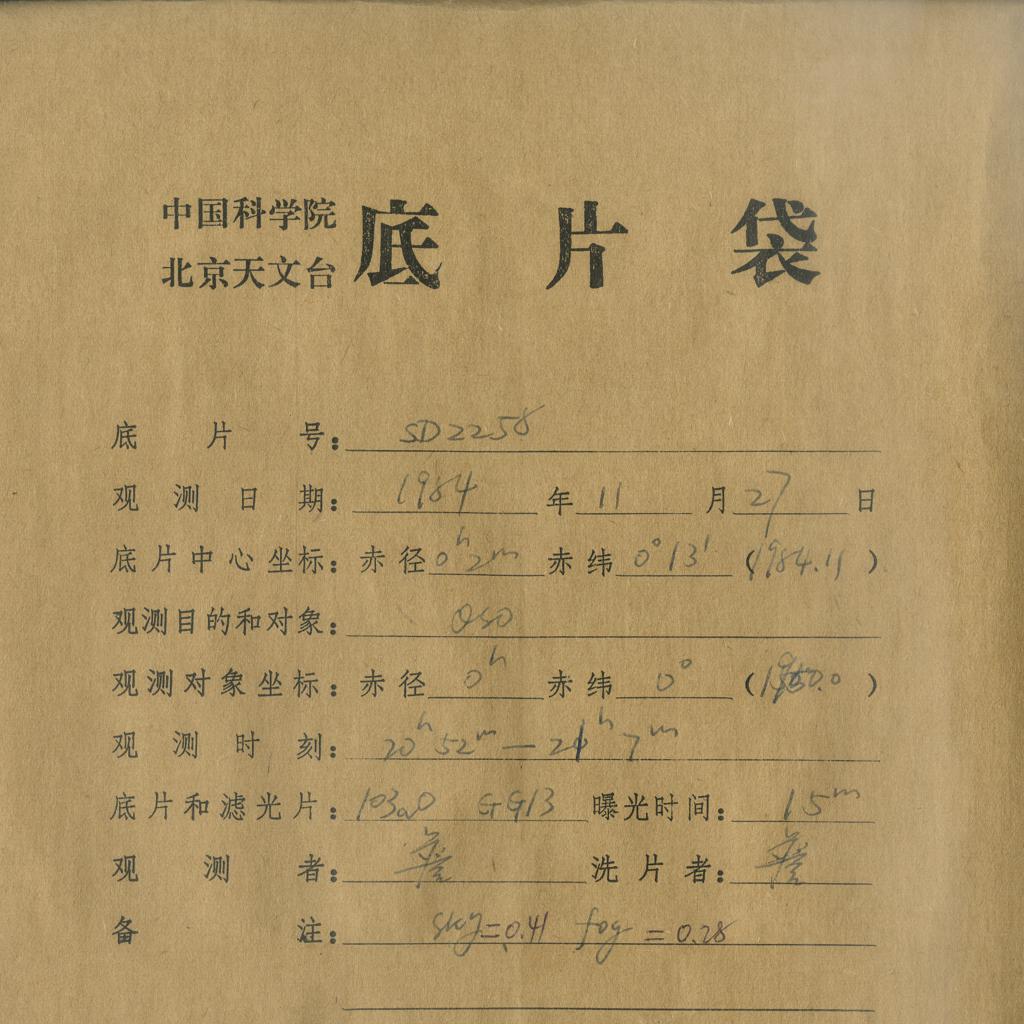 中国科学院
北京天文台
底片袋
底片号：SD2258
观测日期：1984年11月27日
底片中心坐标：赤径0h2m赤纬0°13'（1984.11）
观测目的和对象：QSO
观测对象坐标：赤径0h赤纬0°（1950.0）
观测时刻：20h52m—21h7m
底片和滤光片：103aO GG13 曝光时间：15m
观测者： 洗片者：
备注：sky=0.41 fog=0.28